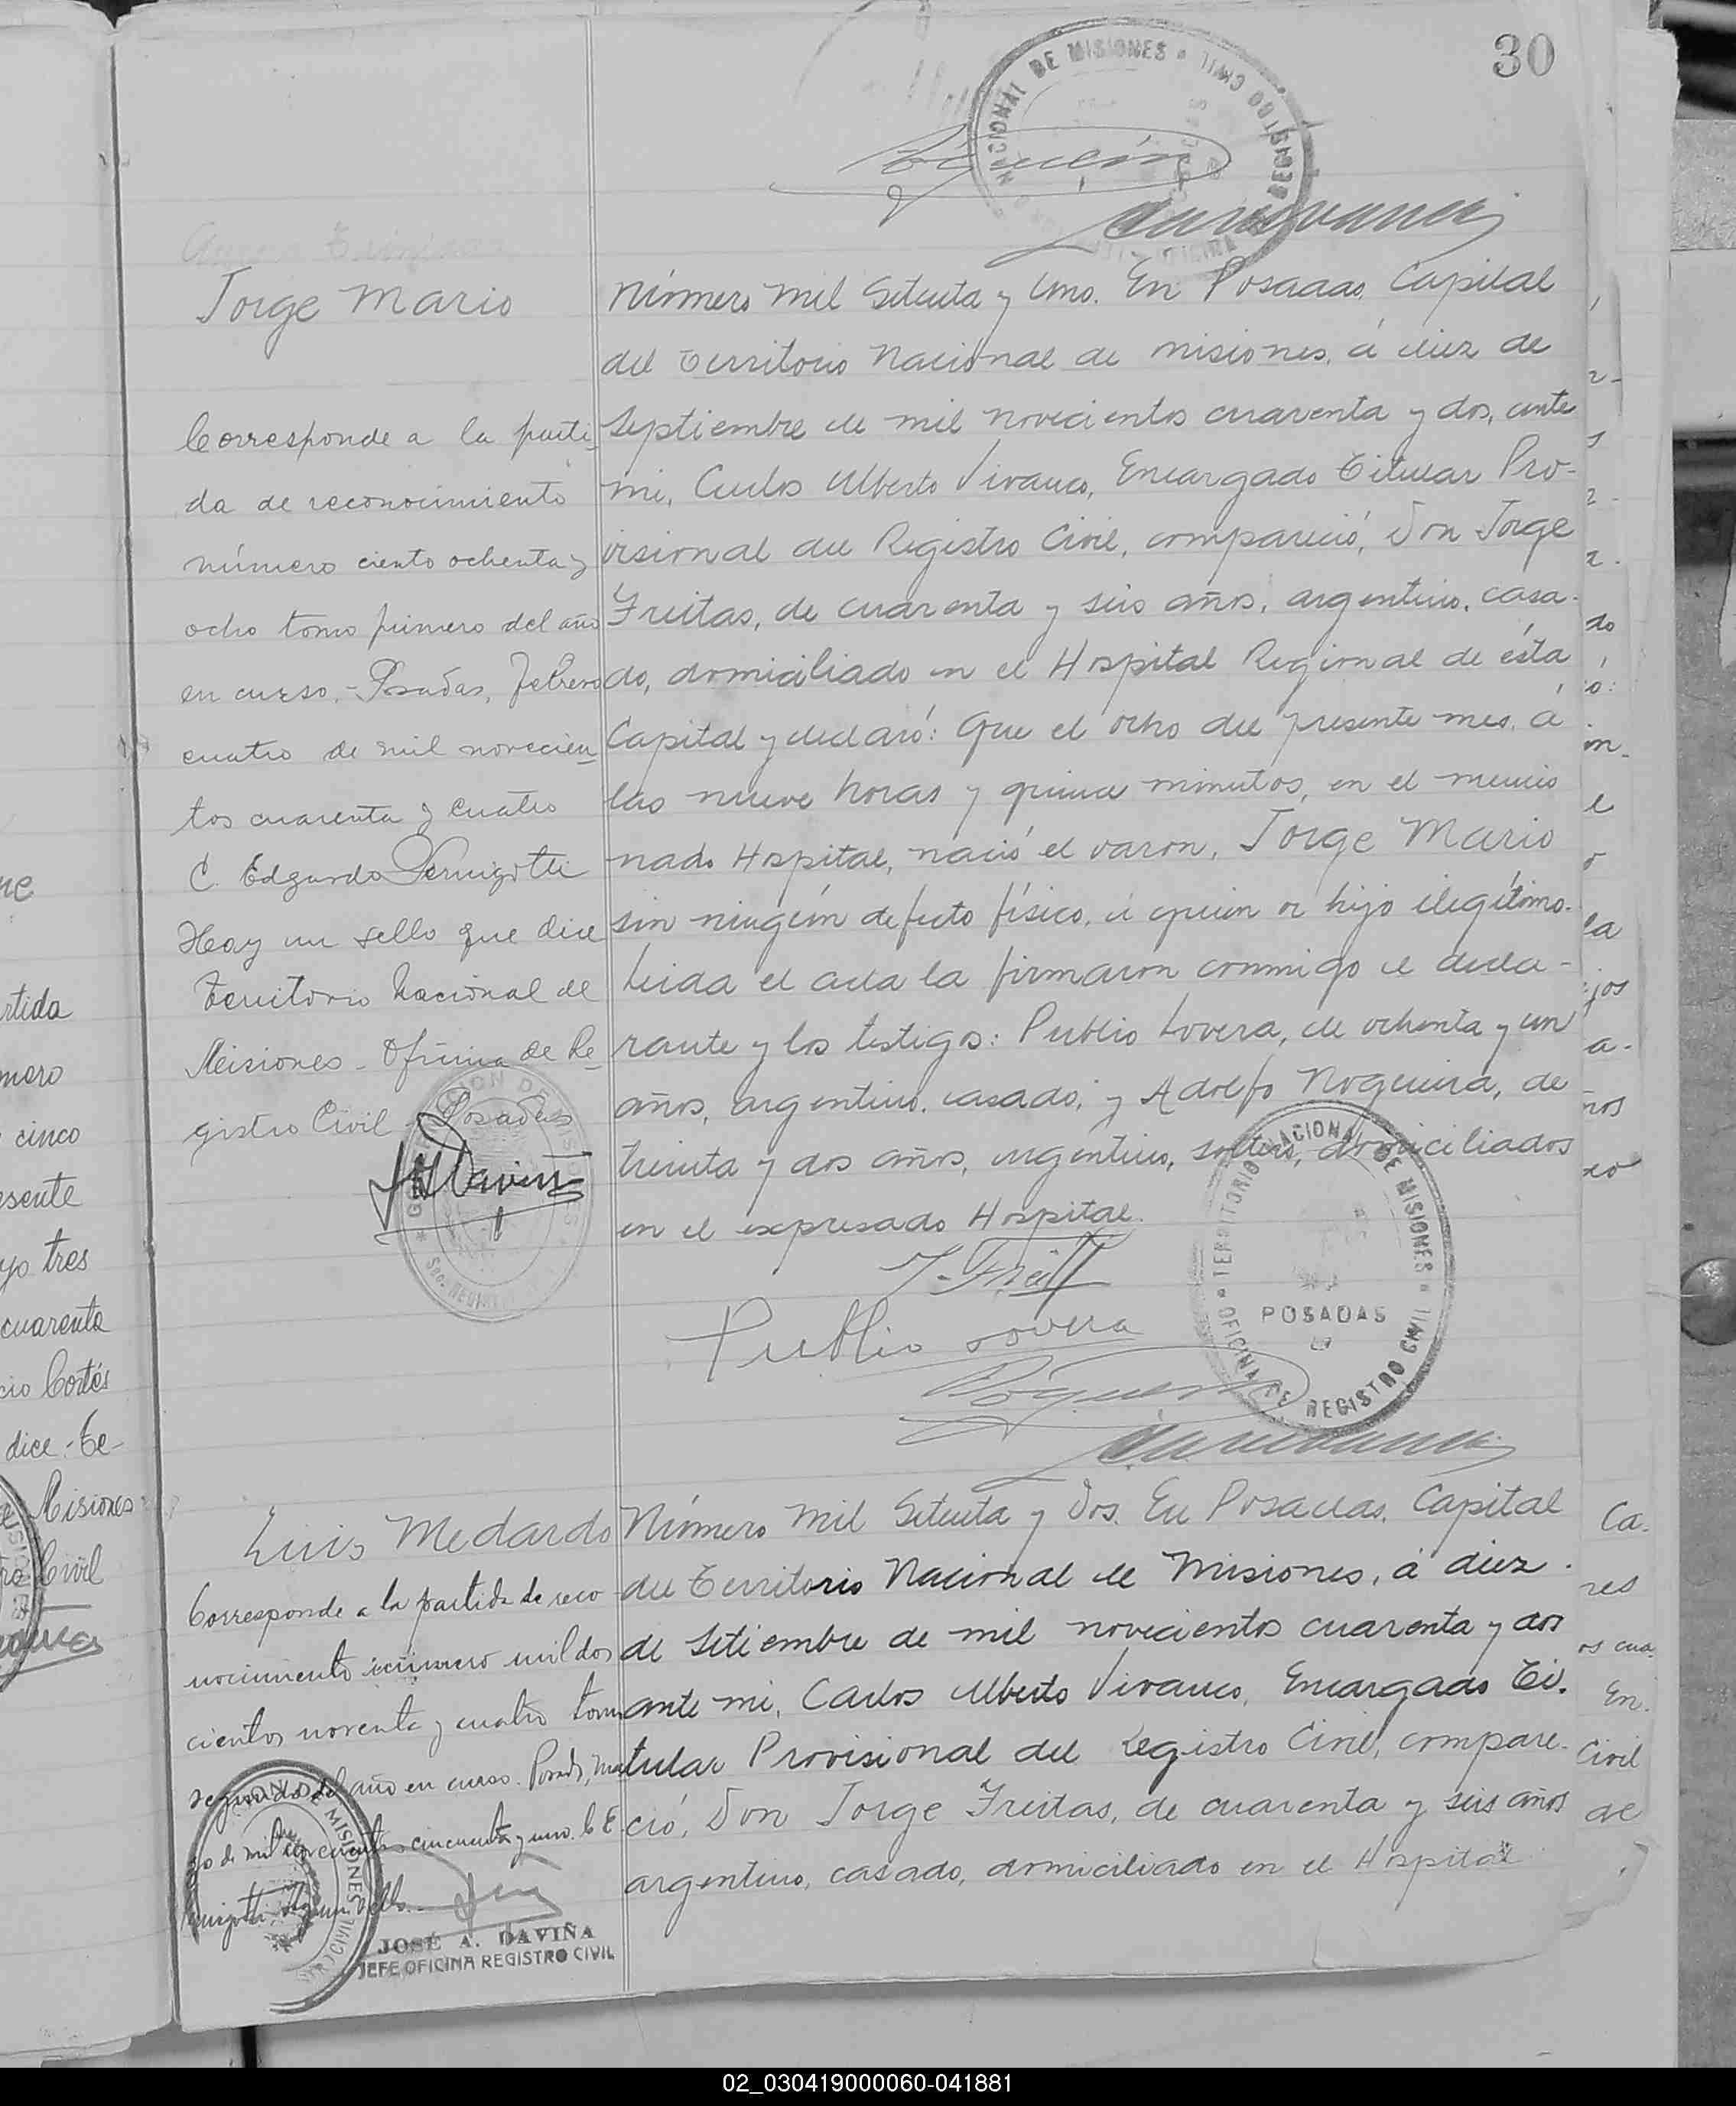 30
NACIONAL DE MISIONES * REGISTRO CIVIL
Jorge Mario
Corresponde a la parti-
da de reconocimiento
número ciento ochenta y
ocho tomo primero del año
en curso.- Posadas, febrero
cuatro de mil novecien-
tos cuarenta y cuatro
C. Edgardo Pernigotti
Hay un sello que dice
Territorio Nacional de
Misiones - Oficina de Re-
gistro Civil - Posadas
Número Mil Setenta y Uno. En Posadas, Capital
del Territorio Nacional de Misiones, á diez de
Septiembre de mil novecientos cuarenta y dos, ante
mi, Carlos Alberto Vivanco, Encargado Titular Pro-
visional del Registro Civil, compareció, Don Jorge
Freitas, de cuarenta y seis años, argentino, casa-
do, domiciliado en el Hospital Regional de ésta
Capital y declaró: Que el ocho del presente mes, á
las nueve horas y quince minutos, en el mencio
nado Hospital, nació el varon, Jorge Mario
sin ningún defecto físico, á quien
hijo ilegítimo.
Leida el acta la firmaron conmigo el decla-
rante y los testigos: Publio Lovera, de ochenta y un
años, argentino, casado, y Adolfo Nogueira, de
treinta y dos años, argentino, soltero, domiciliados
en el expresado Hospital.
J. Freitas
Publio Lovera
TERRITORIO NACIONAL DE MISIONES * OFICINA DE REGISTRO CIVIL
POSADAS
Luis Medardo
Corresponde a la partida de reco-
nocimiento número mil dos
cientos noventa y cuatro tomo
segundo del año en curso. Posadas, mar
zo de mil novecientos cincuenta y uno. C E
JOSÉ A. DAVIÑA
JEFE OFICINA REGISTRO CIVIL
Número Mil Setenta y Dos. En Posadas, Capital
del Territorio Nacional de Misiones, á diez
de Setiembre de mil novecientos cuarenta y dos
ante mi, Carlos Alberto Vivanco, Encargado Ti-
tular Provisional del Registro Civil, compare-
ció, Don Jorge Freitas, de cuarenta y seis años
argentino, casado, domiciliado en el Hospital
rtida
mero
cinco
esente
yo tres
cuarenta
cio Cortés
dice.-Te-
Misiones
Civil
02_030419000060-041881